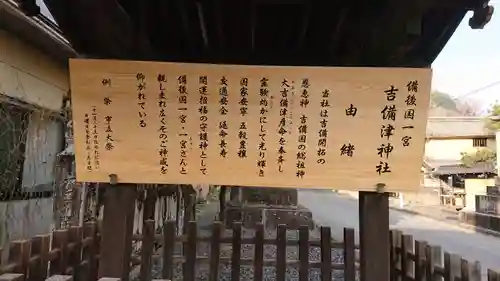 備後国一宮
吉備津神社
由緒
当社は吉備開拓の
恩恵神 吉備国の総祖神
大吉備津彦命を奉斎し
霊験灼かにして光り輝く
国家安寧 五穀豊穣
交通安全 延命長寿
開運招福の守護神として
備後国一宮・一宮さんと
親しまれ広くそのご神威を
仰がれている
例祭 市立大祭